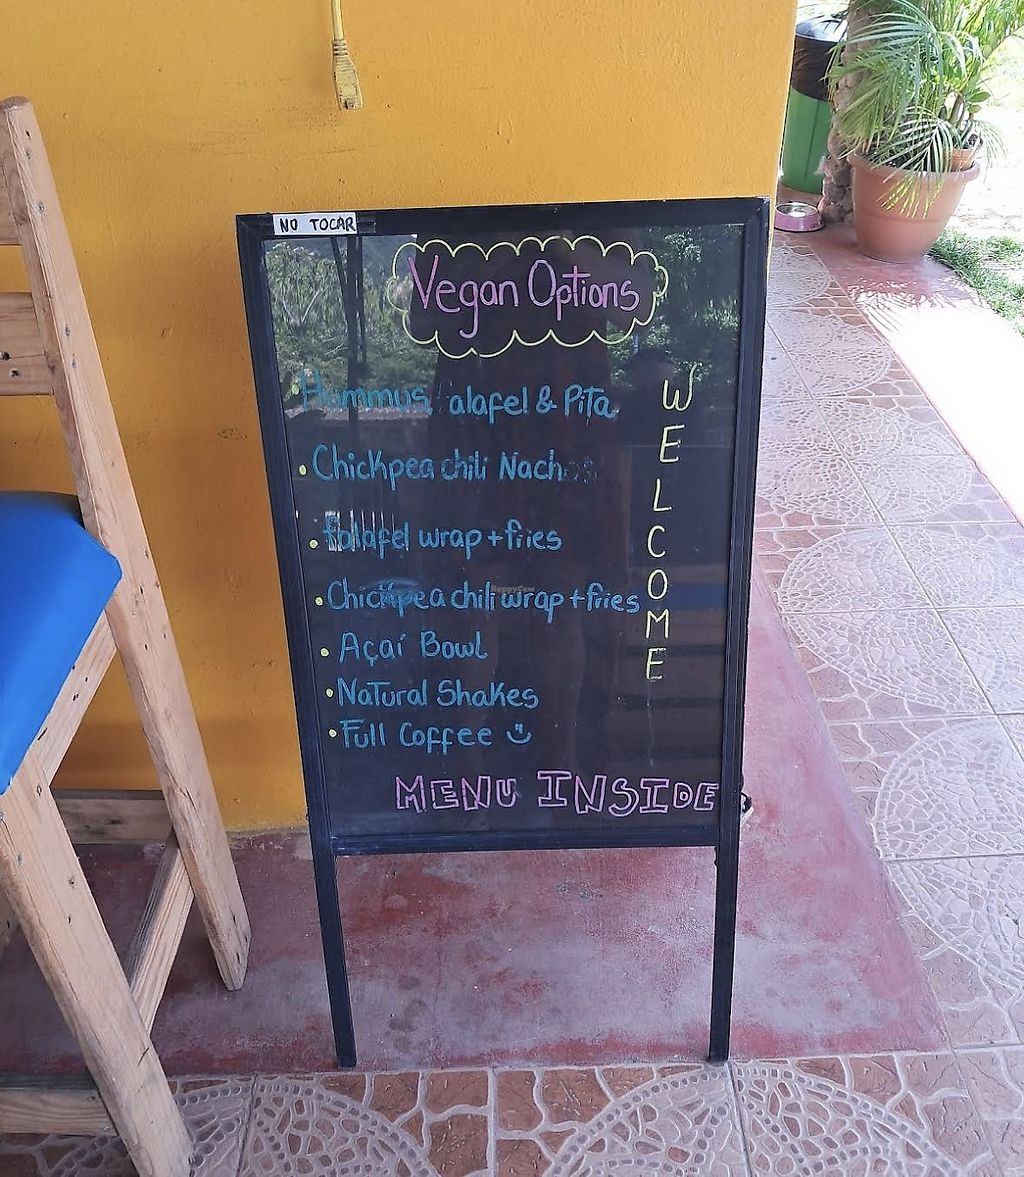 NO TOCAR
Vegan Options
Hummus, alafel & Pita
• Chickpea chili Nachos
• falafel wrap + fries
• Chickpea chili wrap + fries
• Açaí Bowl
• Natural Shakes
• Full Coffee
WELCOME
MENU INSIDE
HappyCow